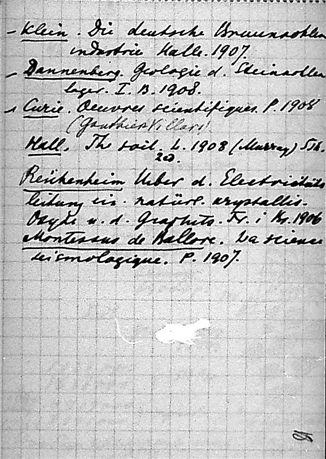 – Klein. Die deutsche Braunkohlen
industrie Halle. 1907.
– Dannenberg. Geologie d. Steinkohlen
lager. I. B. 1908.
– Curie. Oeuvres scientifiques. P. 1908
(Gauthier Villars)
Hall. The soil. L. 1908 (Murray) 5sh.
2ed.
Reichenheim Ueber d. Electricitäts
leitung ein. natürl. krystallis.
Oxyde u. d. Graphits. Fr. i Br. 1906
Montessus de Ballore. La science
seismologique. P. 1907.